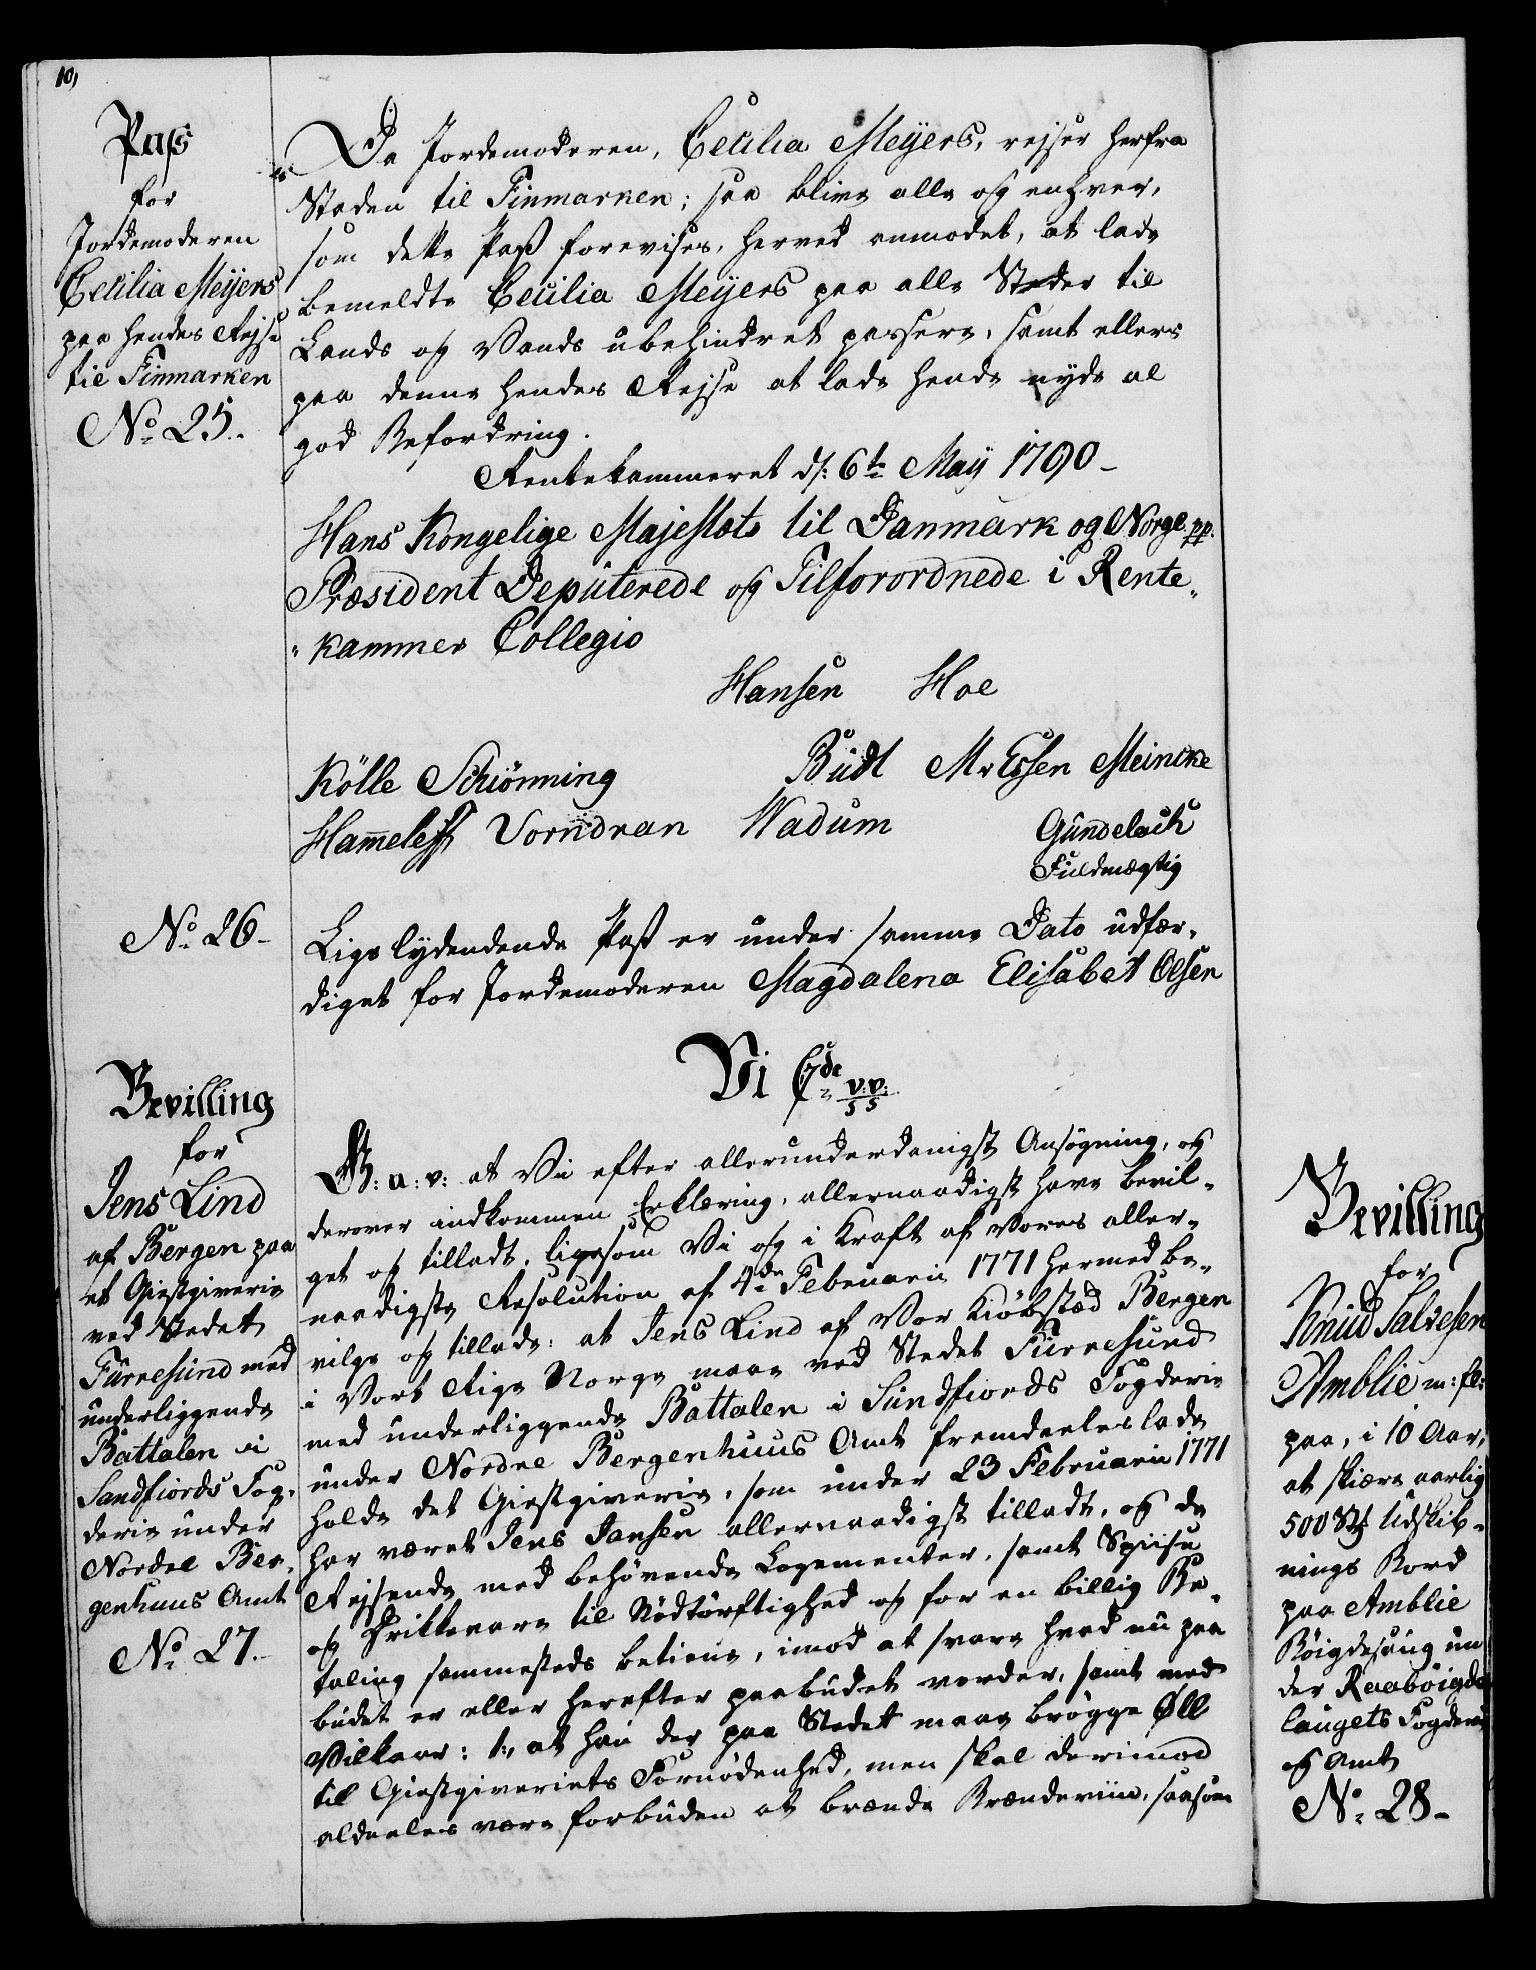 10,
Pass
for
Jordemoderen
Cecilia Meijers
paa hendes Rejse
til Finmarken
No 25.
Da Jordemoderen, Cecilia Meijers, rejser herfra
Staden til Finmarken; saa blive alle og enhver,
som dette Pass forevises, herved anmodet, at lade
bemeldte Cecilia Meijers paa alle Steder til
Lands og Vands ubehindret passere, samt ellers
paa denne hendes Rejse at lade hende nyde al
god Befordring.
Rentekammeret d: 6te Maij 1790
Hans Kongelige Majestæts til Danmark og Norge pp.
Præsident Deputerede og Tilforordnede i Rente-
kammer Collegio
Hansen Hoe
Kölle Schiönning Budtz M v Essen Meincke
Hammeleff Vorndran Wadum Gundelach
Fuldmægtig
No 26
Ligelydendende Pass er under samme Dato udfær-
diget for Jordemoderen Magdalena Elisabet Olsen
Vi C7de
v: v:
5 5
Bevilling
for
Jens Lind
af Bergen paa
et Giestgiverie
ved Stedet
Furresund med
underliggende
Battalen i
Sundfiords Fog-
derie under
Nordre Ber-
genhuus Amt
No 27.
G: a: v: at Vi efter allerunderdanigst Ansögning, og
derover indkommen Erklæring, allernaadigst have bevil-
get og tilladt, ligesom Vi og i Kraft af Vores aller-
naadigste Resolution af 4de Februarii 1771 hermed be-
vilge og tillade: at Jens Lind af Vor Kiöbstæd Bergen
i Vort Rige Norge maae ved Stedet Furresund
med underliggende Battalen i Sundfiords Fogderie
under Nordre Bergenhuus Amt fremdeeles lade
holde det Giestgiverie, som under 23 Februarii 1771
har været Jens Jansen allernaadigst tilladt, og de
Rejsende med behövende Logementer, samt Spiise
og Drikkevare til Nödtörftighed og for en billig Be-
taling sammesteds betiene, imod at svare hvad nu paa
budet er eller herefter paabudet vorder, samt med
Vilkaar: 1., at han der paa Stedet maae brögge Øll
til Giestgiveriets Fornödenhed, men skal derimod
aldeeles være forbuden at brænde Brændeviin, saasom
Bevilling
for
Knud Salvesen
Amblie m: fl:
paa, i 10 Aar,
at skiære aarlig
500 St Udskib-
nings Bord
paa Amblie
Böigdesaug un
der Raaböigde
laugets Fogderie
og Amt
No 28